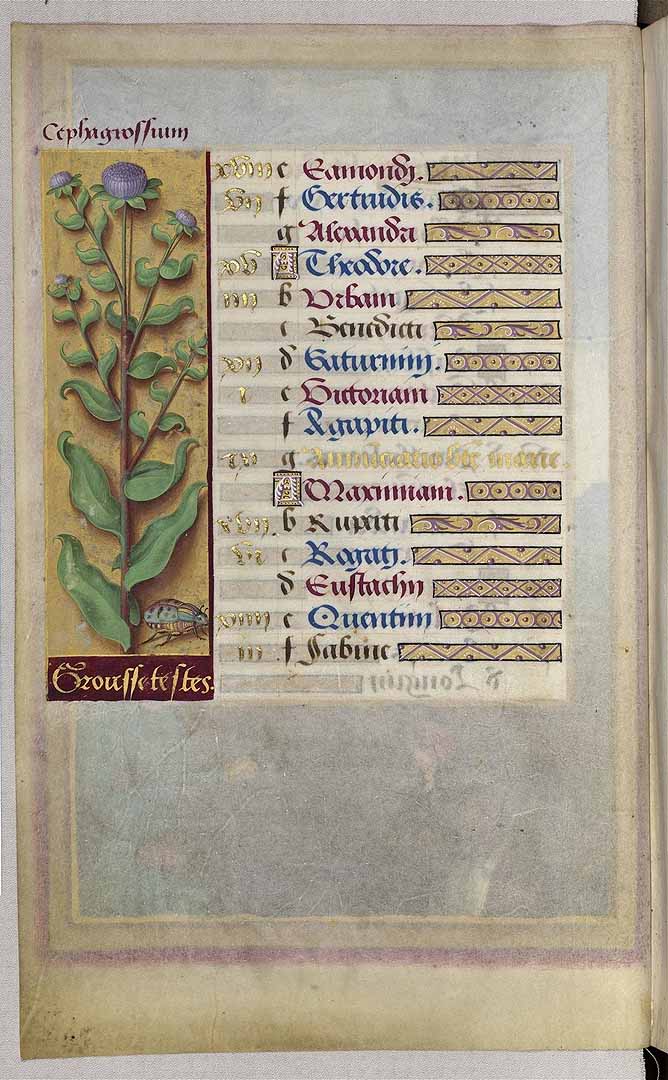 Cephagrossium
xviii e Eamondi.
vii f Gertrudis.
g Alexandri
xv A Theodore.
iiii b Urbani
c Benedicti
xii d Saturnini.
i e Victoriani
f Agapiti.
ix g Annunciatio bte marie.
A Maximiani.
xvii b Ruperti
vi c Rogati.
d Eustachii
xiiii e Quentini
iii f Sabine
Grousse testes.